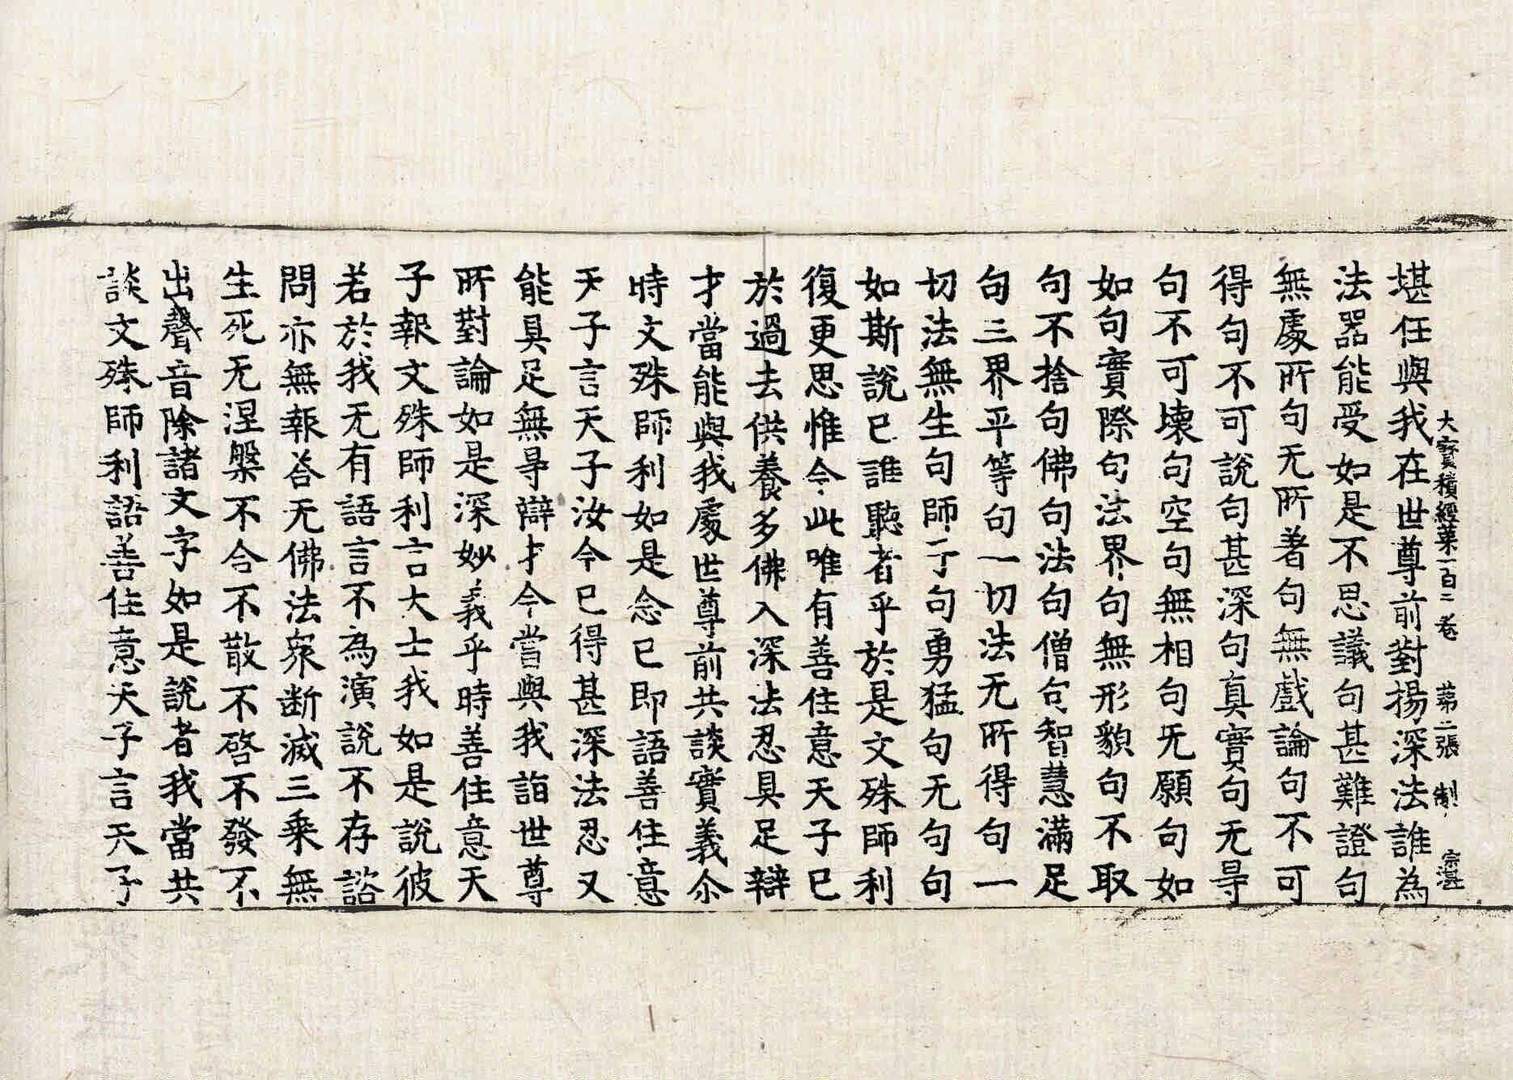 大寳積經苐一百二卷　苐二張　制　宗湛
堪任與我在世尊前對揚深法誰為
法器能受如是不思議句甚難證句
無處所句无所著句無戲論句不可
得句不可說句甚深句真實句无㝵
句不可壞句空句無相句无願句如
如句實際句法界句無形貌句不取
句不捨句佛句法句僧句智慧滿足
句三界平等句一切法无所得句一
切法無生句師子句勇猛句无句句
如斯說已誰聽者乎於是文殊師利
復更思惟今此唯有善住意天子已
於過去供養多佛入深法忍具足辯
才當能與我處世尊前共談實義尒
時文殊師利如是念已即語善住意
天子言天子汝今已得甚深法忍又
能具足無㝵辯才今當與我詣世尊
所對論如是深妙義乎時善住意天
子報文殊師利言大士我如是說彼
若於我无有語言不為演說不存諮
問亦無報荅无佛法衆断滅三乘無
生死无涅槃不合不散不啓不發不
出聲音除諸文字如是說者我當共
談文殊師利語善住意天子言天子